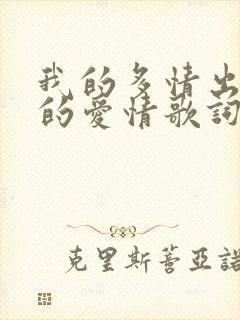 我的多情出
的愛情歌詞
克里斯蒂亞諾